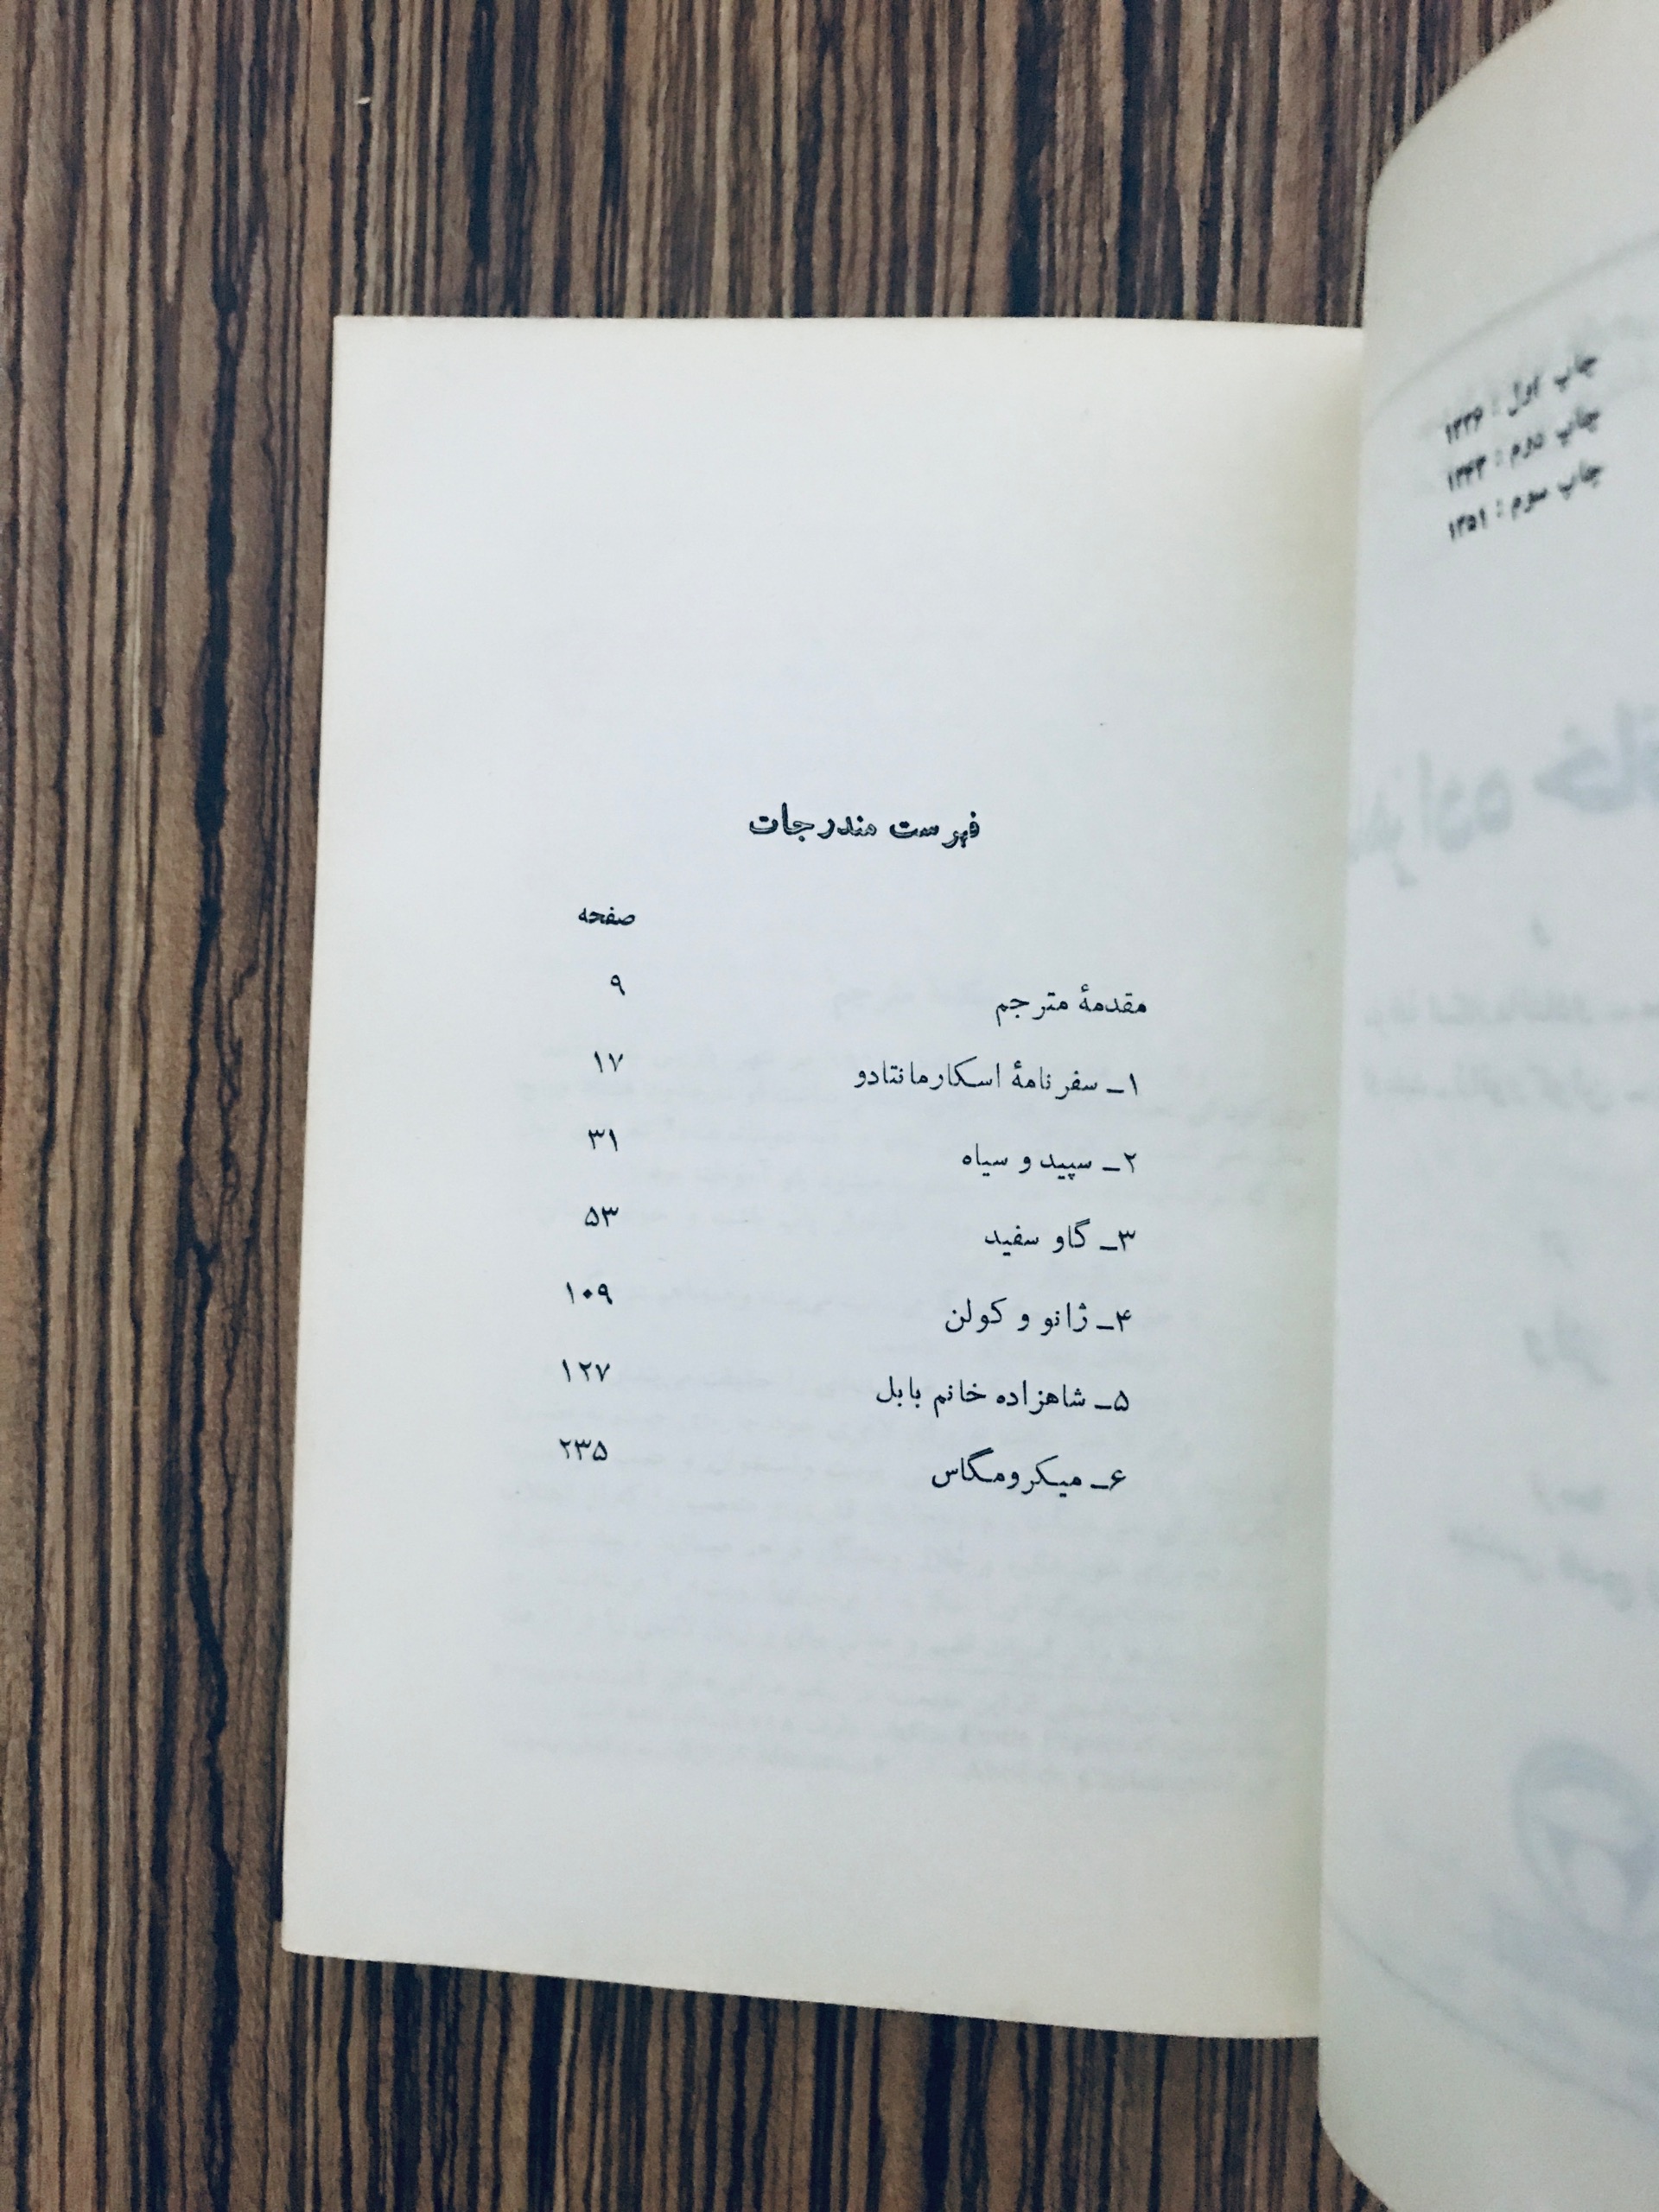 چاپ اول : ۱۳۳۶
چاپ دوم : ۱۳۴۳
چاپ سوم : ۱۳۵۱
فهرست مندرجات
صفحه
مقدمهٔ مترجم ۹
۱ـ سفرنامهٔ اسکارمانتادو ۱۷
۲ـ سپید و سیاه ۳۱
۳ـ گاو سفید ۵۳
۴ـ ژانو و کولن ۱۰۹
۵ـ شاهزاده خانم بابل ۱۲۷
۶ـ میکرومگاس ۲۳۵